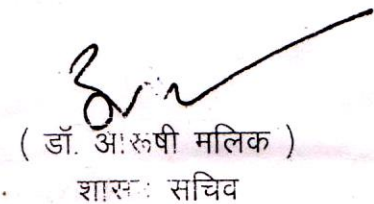 ( डॉ. आरूषी मलिक )
शासन सचिव